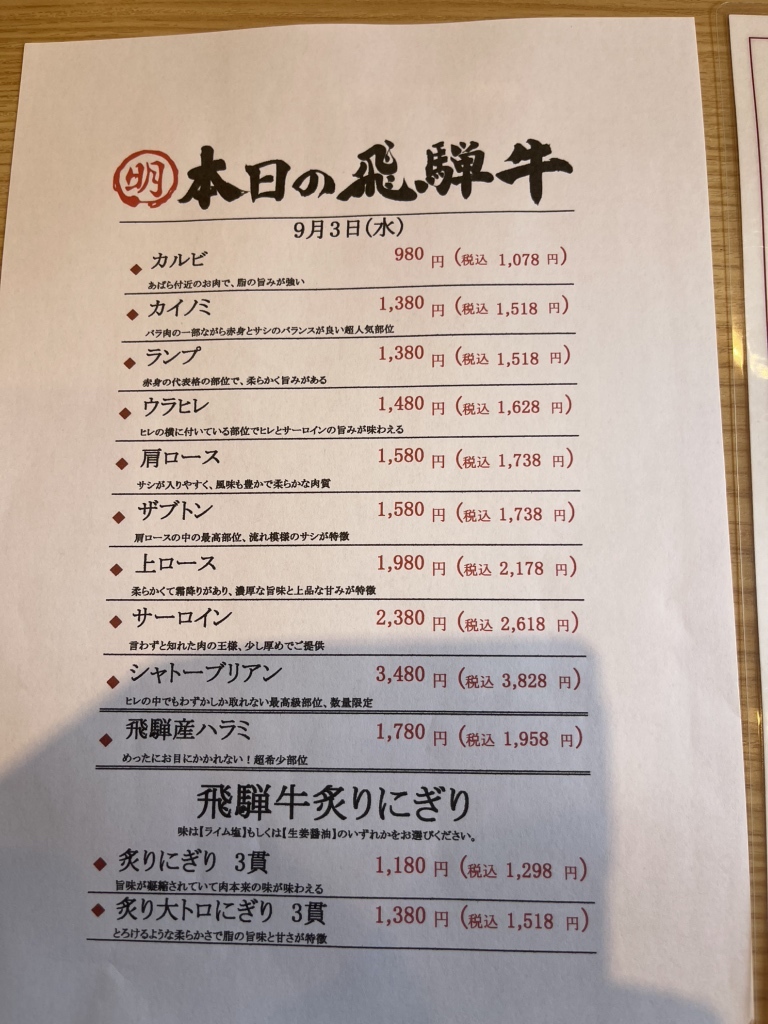 明 本日の飛騨牛
9月3日(水)
◆ カルビ 980 円 (税込 1,078 円)
あばら付近のお肉で、脂の旨みが強い
◆ カイノミ 1,380 円 (税込 1,518 円)
バラ肉の一部ながら赤身とサシのバランスが良い超人気部位
◆ ランプ 1,380 円 (税込 1,518 円)
赤身の代表格の部位で、柔らかく旨みがある
◆ ウラヒレ 1,480 円 (税込 1,628 円)
ヒレの横に付いている部位でヒレとサーロインの旨みが味わえる
◆ 肩ロース 1,580 円 (税込 1,738 円)
サシが入りやすく、風味も豊かで柔らかな肉質
◆ ザブトン 1,580 円 (税込 1,738 円)
肩ロースの中の最高部位、流れ模様のサシが特徴
◆ 上ロース 1,980 円 (税込 2,178 円)
柔らかくて霜降りがあり、濃厚な旨味と上品な甘みが特徴
◆ サーロイン 2,380 円 (税込 2,618 円)
言わずと知れた肉の王様、少し厚めでご提供
◆ シャトーブリアン 3,480 円 (税込 3,828 円)
ヒレの中でもわずかしか取れない最高級部位、数量限定
◆ 飛騨産ハラミ 1,780 円 (税込 1,958 円)
めったにお目にかかれない！超希少部位
飛騨牛炙りにぎり
味は【ライム塩】もしくは【生姜醤油】のいずれかをお選びください。
◆ 炙りにぎり 3貫 1,180 円 (税込 1,298 円)
旨味が凝縮されていて肉本来の味が味わえる
◆ 炙り大トロにぎり 3貫 1,380 円 (税込 1,518 円)
とろけるような柔らかさで脂の旨味と甘さが特徴